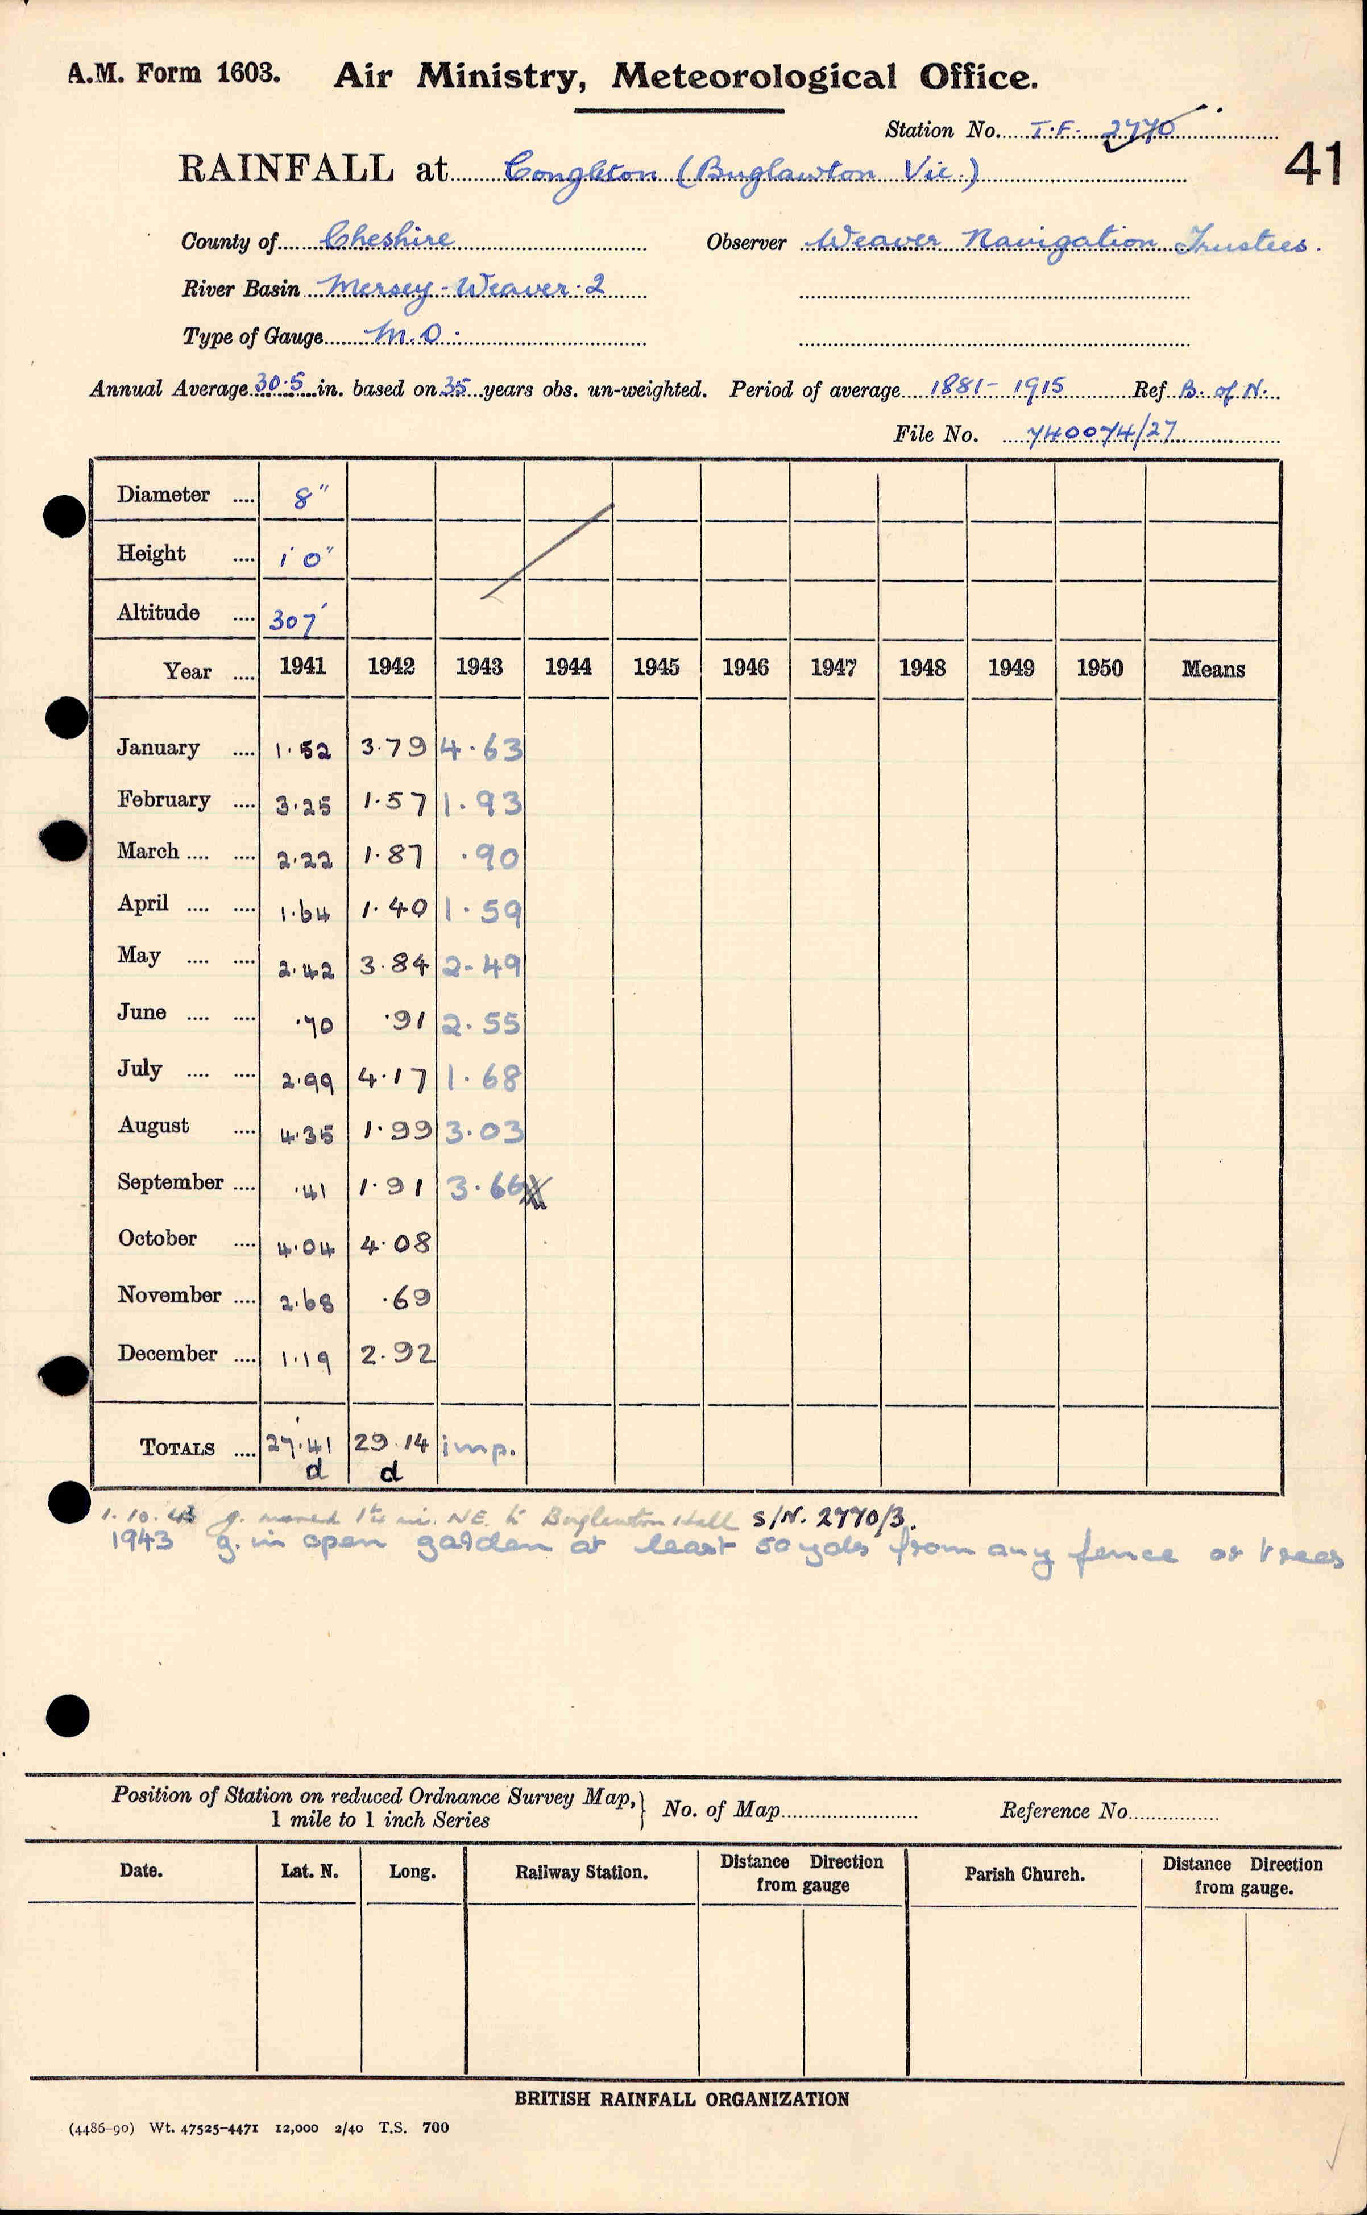 A.M. Form 1603. Air Ministry, Meteorological Office.
Station No. T.F. 2770
41
RAINFALL at Congleton (Buglawton Vic.)
County of Cheshire Observer Weaver Navigation Trustees.
River Basin Mersey-Weaver.2
Type of Gauge M.O.
Annual Average 30.5 in. based on 35 years obs. un-weighted. Period of average 1881-1915 Ref. B. of N.
File No. 740074/27
Diameter .... 8"
Height .... 1'0"
Altitude .... 307'
Year .... 1941 1942 1943 1944 1945 1946 1947 1948 1949 1950 Means
January .... 1.52 3.79 4.63
February .... 3.25 1.57 1.93
March .... .... 2.22 1.87 .90
April .... .... 1.64 1.40 1.59
May .... .... 2.42 3.84 2.49
June .... .... .70 .91 2.55
July .... .... 2.99 4.17 1.68
August .... 4.35 1.99 3.03
September .... .41 1.91 3.66
October .... 4.04 4.08
November .... 2.68 .69
December .... 1.19 2.92
TOTALS .... 27.41 29.14 imp.
d d
1.10.43 g. moved 1¼ mi. NE. to Buglawton Hall S/N. 2770/3.
1943 g. in open garden at least 50 yds from any fence or trees
Position of Station on reduced Ordnance Survey Map,} No. of Map Reference No.
1 mile to 1 inch Series
Date. Lat. N. Long. Railway Station. Distance Direction from gauge Parish Church. Distance Direction from gauge.
BRITISH RAINFALL ORGANIZATION
(4486-90) Wt. 47525-4471 12,000 2/40 T.S. 700